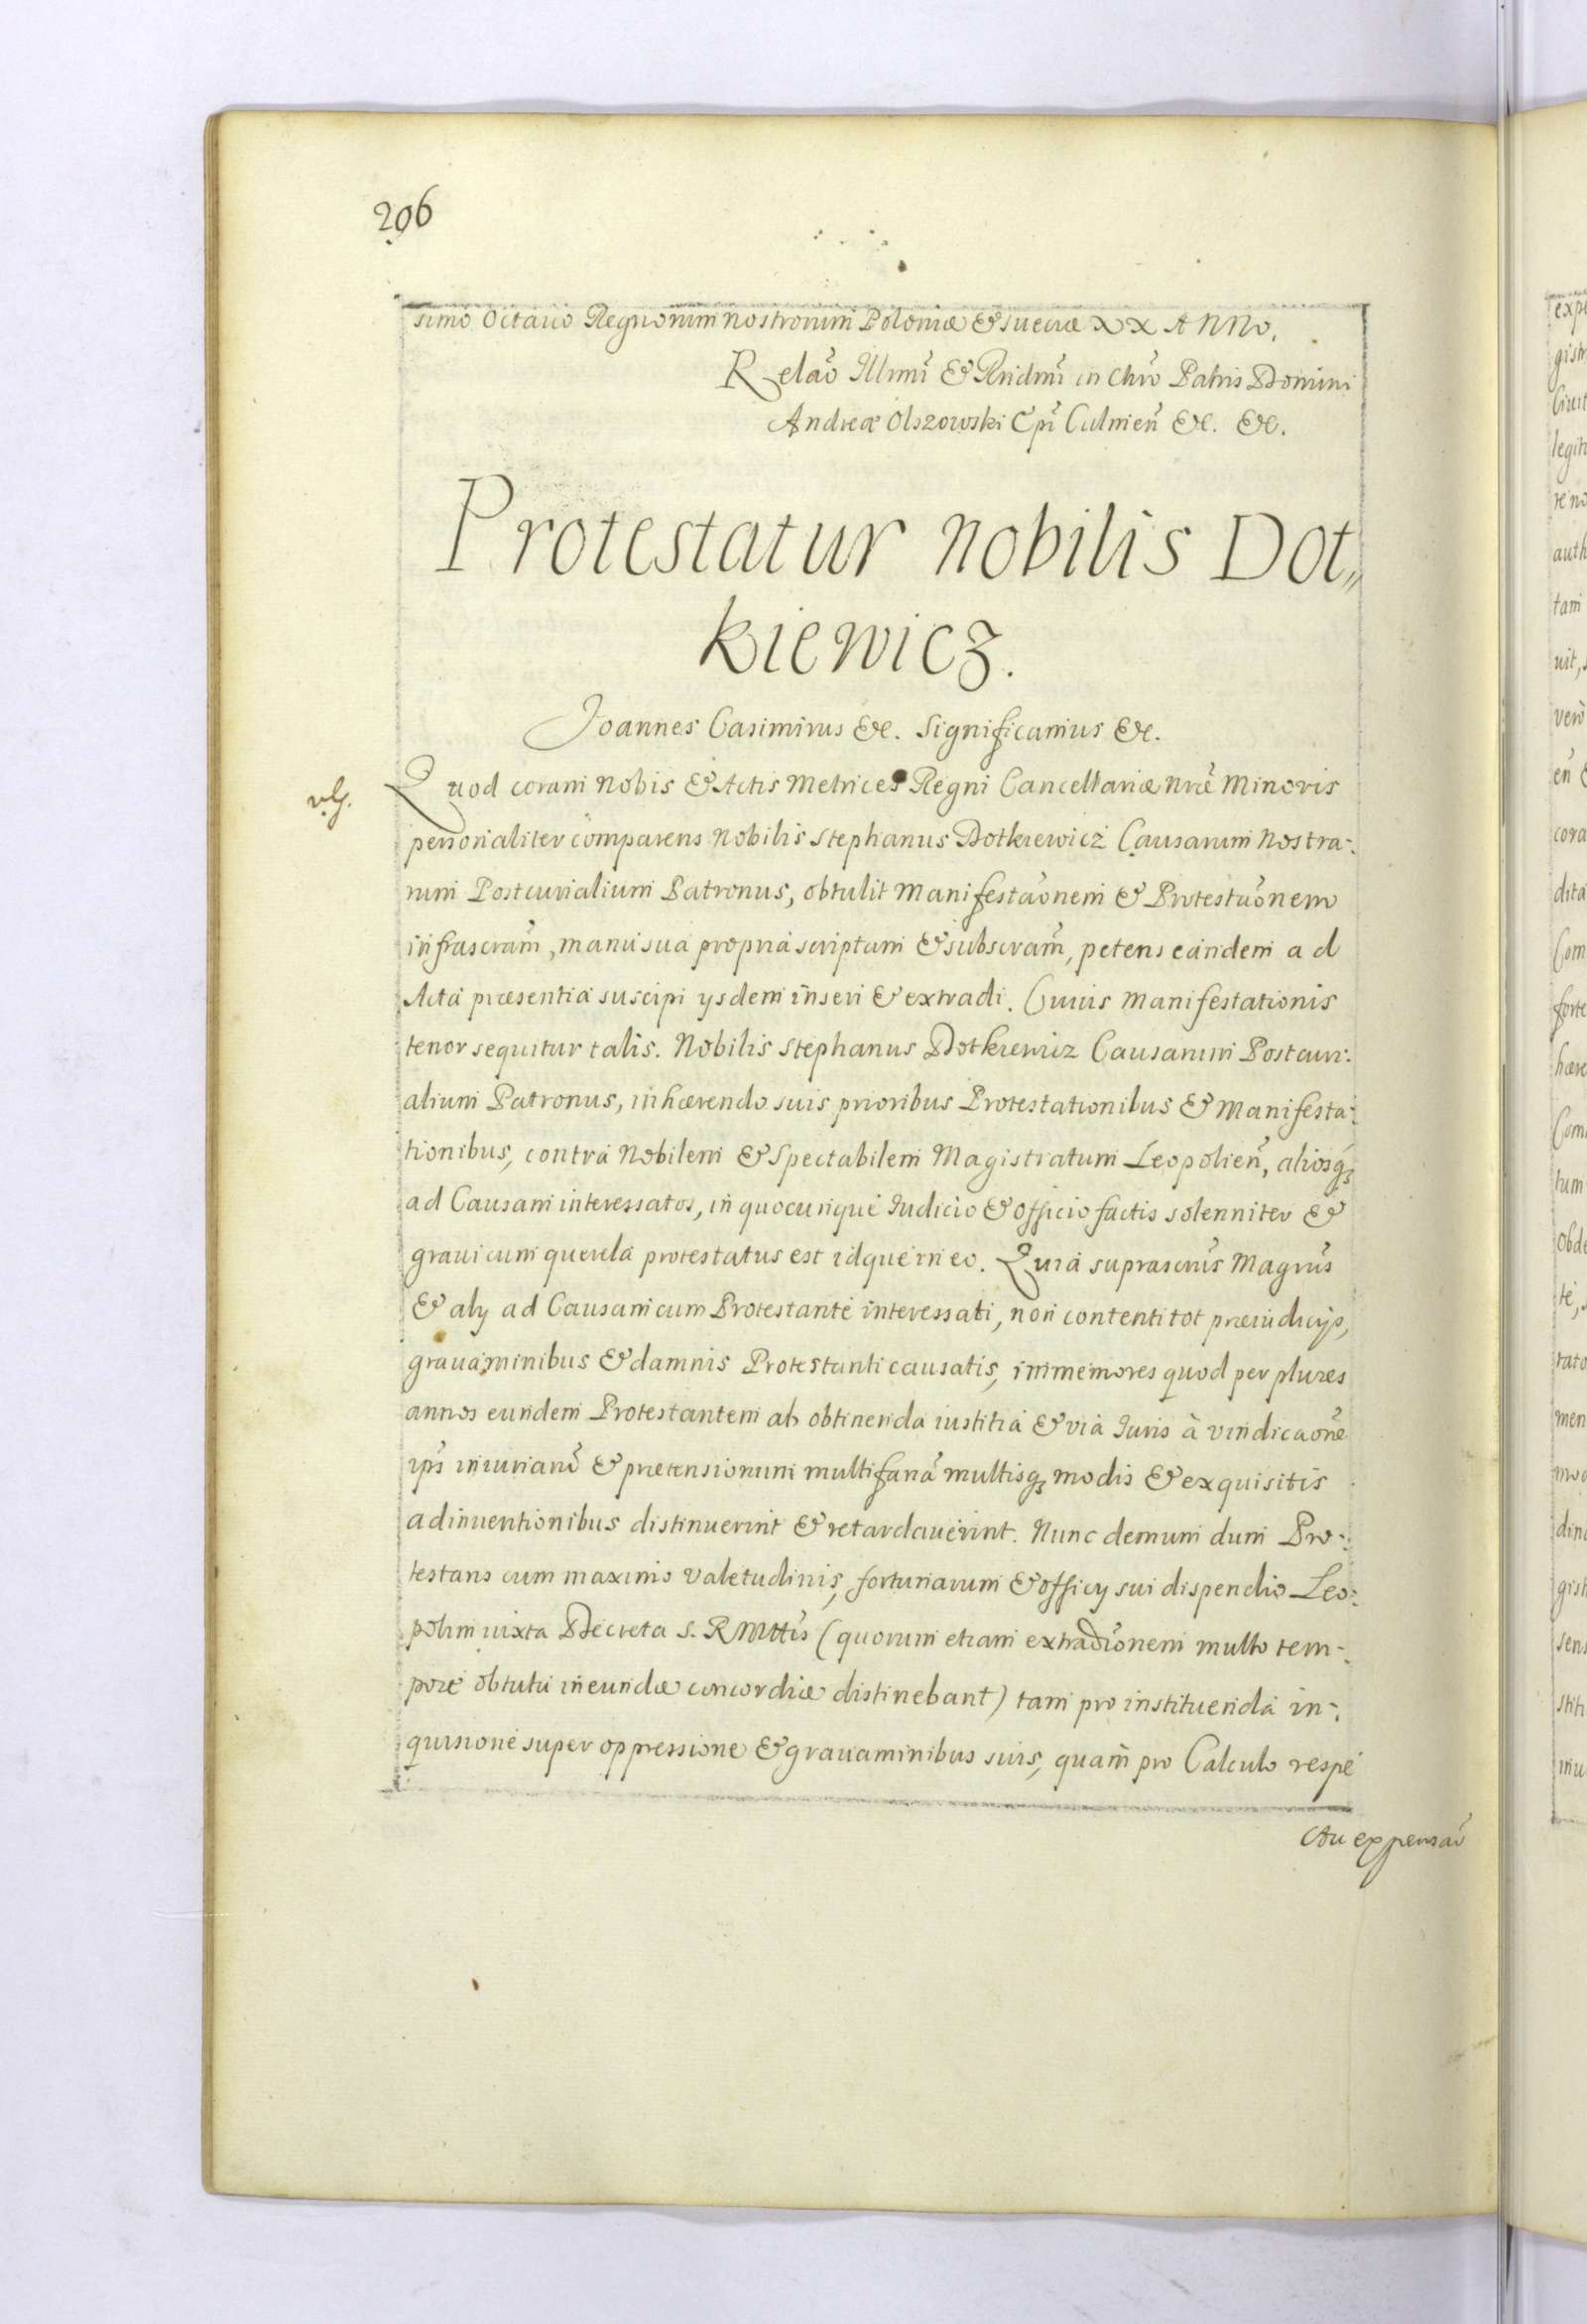 206
simo Octauo Regnorum nostrorum Poloniæ & Sueciæ XX ANNo.
Relaõ Illmi & Rndmi in Chro Patris Domini
Andreæ Olszowski Epi Culmien &c. &c.
Protestatur nobilis Dot„
kiewicz.
Joannes Casimirus &c. Significamus &c.
vlg.
Quod coram Nobis & Actis Metrices Regni Cancellariæ nræ Minoris
personaliter comparens Nobilis Stephanus Dotkiewicz Causarum Nostra-:
rum Postcurialium Patronus, obtulit Manifestaõnem & Protestaõnem
infrascram, manu sua propria scriptam & subscram, petens eandem ad
Acta præsentia suscipi ysdem inseri & extradi. Cuius Manifestationis
tenor sequitur talis. Nobilis Stephanus Dotkiewicz Causarum Postcuri:
alium Patronus, inhærendo suis prioribus Protestationibus & Manifesta:
tionibus, contra Nobilem & Spectabilem Magistratum Leopolien, aliosq
ad Causam interessatos, in quocunque Iudicio & Officio factis solenniter &
graui cum querela protestatus est idque in eo. Quia suprascrus Magrus
& aly ad Causam cum Protestante interessati, non contenti tot præiudicys,
grauaminibus & damnis Protestanti causatis, immemores quod per plures
annos eundem Protestantem ab obtinenda iustitia & via Iuris à vindicaone
ips iniuriaru & prætensionum multifaria multisq modis & exquisitis
adinuentionibus distinuerint & retardauerint. Nunc demum dum Pro-:
testans cum maximo valetudinis, fortunarum & officy sui dispendio Leo:
polim iuxta Decreta S. R Mttis (quorum etiam extradiõnem multo tem-:
pore obtutu ineundæ concordiæ distinebant) tam pro instituenda in-:
quisione super oppressione & grauaminibus suis, quam pro Calculo respe
ctu expensaru